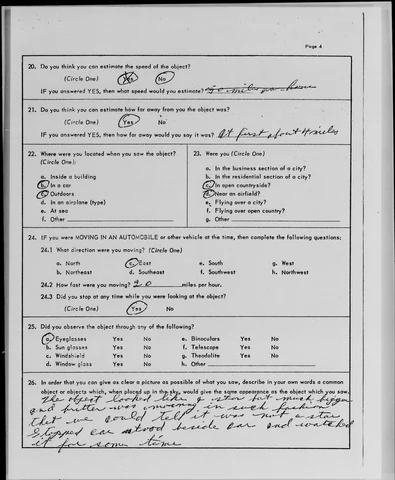 Page 4
20. Do you think you can estimate the speed of the object?
(Circle One) Yes No
IF you answered YES, then what speed would you estimate?
21. Do you think you can estimate how far away from you the object was?
(Circle One) Yes No
IF you answered YES, then how far away would you say it was? At first about 4 miles
22. Where were you located when you saw the object?
(Circle One):
a. Inside a building
b. In a car
c. Outdoors
d. In an airplane (type)
e. At sea
f. Other
23. Were you (Circle One)
a. In the business section of a city?
b. In the residential section of a city?
c. In open countryside?
d. Near an airfield?
e. Flying over a city?
f. Flying over open country?
g. Other
24. IF you were MOVING IN AN AUTOMOBILE or other vehicle at the time, then complete the following questions:
24.1 What direction were you moving? (Circle One)
a. North c. East e. South g. West
b. Northeast d. Southeast f. Southwest h. Northwest
24.2 How fast were you moving? 20 miles per hour.
24.3 Did you stop at any time while you were looking at the object?
(Circle One) Yes No
25. Did you observe the object through any of the following?
a. Eyeglasses Yes No e. Binoculars Yes No
b. Sun glasses Yes No f. Telescope Yes No
c. Windshield Yes No g. Theodolite Yes No
d. Window glass Yes No h. Other
26. In order that you can give as clear a picture as possible of what you saw, describe in your own words a common
object or objects which, when placed up in the sky, would give the same appearance as the object which you saw.
The object looked like a star but much bigger
and was moving in such fashion
that we could tell it was not a star
Stopped car stood beside car and watched
it for some time